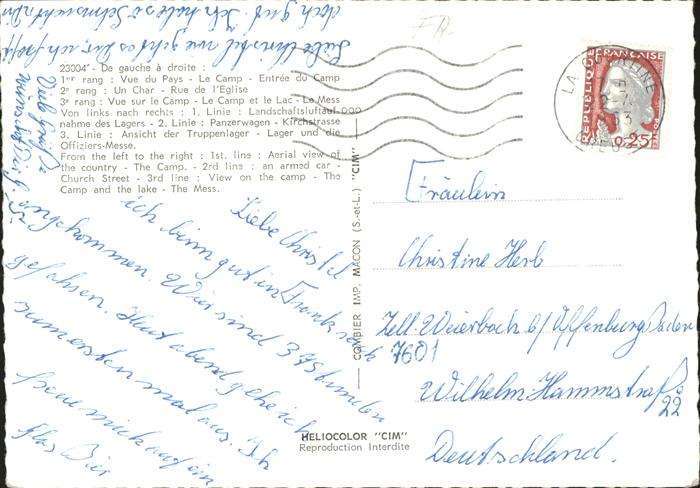 23004 - De gauche à droite :
1er rang : Vue du Pays - Le Camp - Entrée du Camp
2e rang : Un Char - Rue de l'Eglise
3e rang : Vue sur le Camp - Le Camp et le Lac - Le Mess
Von links nach rechts : 1. Linie : Landschaftsluftauf-
nahme des Lagers - 2. Linie : Panzerwagen - Kirchstrasse
3. Linie : Ansicht der Truppenlager - Lager und die
Offiziers-Messe.
From the left to the right : 1st. line : Aerial view of
the country - The Camp. - 2rd line : an armed car -
Church Street - 3rd line : View on the camp - The
Camp and the lake - The Mess.
Liebe Christel
ich bin gut in Frankreich
angekommen. Wir sind 37 Stunden
gefahren. Heut abend gehe ich
zum ersten mal aus. Ich
freue mich auf ein
glas Bier
Liebe Christel wie geht es dir ich hoffe
doch gut. Ich habe so Sehnsucht
Viele Grüße
COMBIER IMP. MACON (S.-et-L.) "CIM"
HELIOCOLOR "CIM"
Reproduction Interdite
REPUBLIQUE FRANCAISE
0,25F
LA COURTINE
Fräulein
Christine Herb
Zell-Weierbach b/ Offenburg Baden
7601
Wilhelm Hammstraße
22
Deutschland.